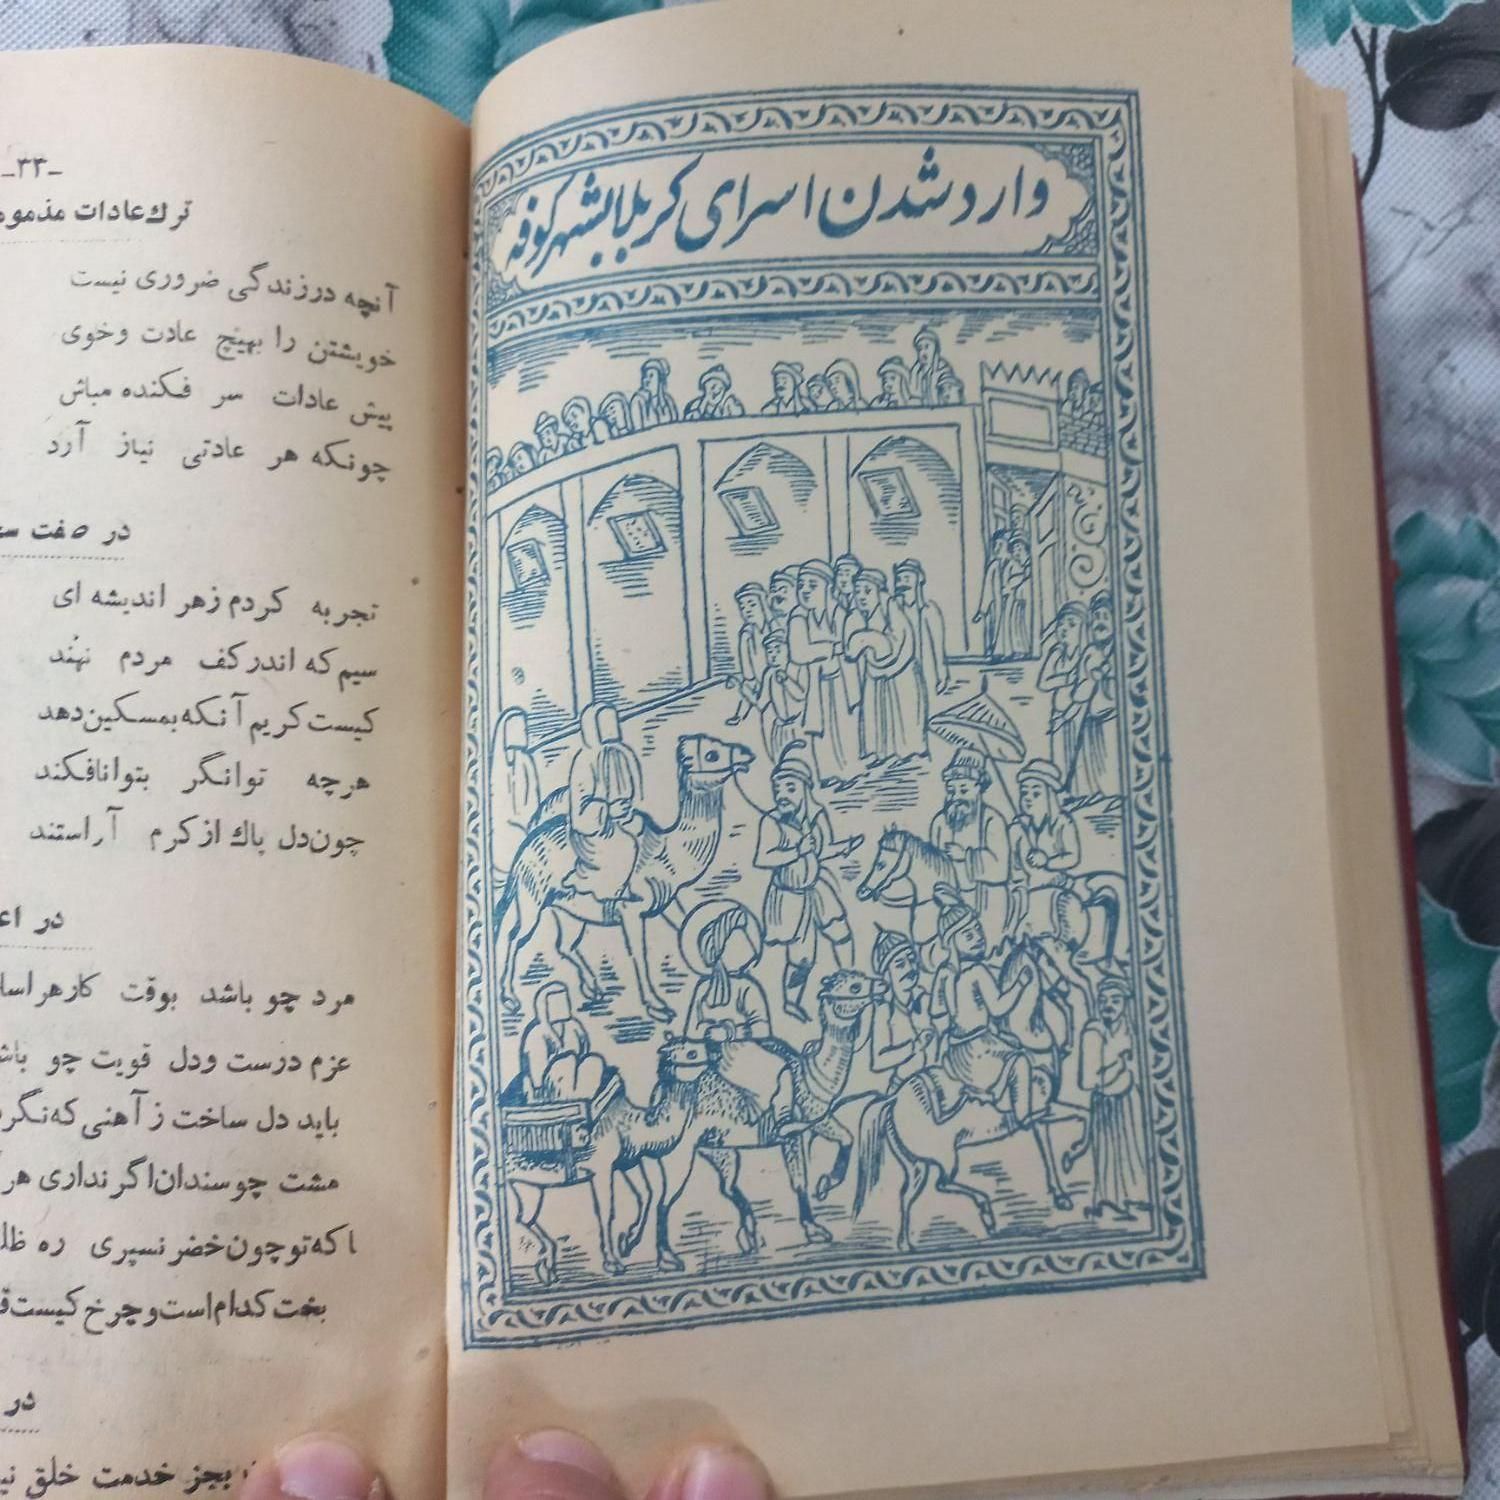 -۳۳-
ترك عادات مذمومه
آنچه درزندگی ضروری نیست
خویشتن را بهیچ عادت وخوی
پیش عادات سر فکنده مباش
چونکه هر عادتی نیاز آرد
در صفت
تجربه کردم زهر اندیشه ای
سیم که اندر کف مردم نهند
کیست کریم آنکه بمسکین دهد
هرچه توانگر بتوانافکند
چون دل پاك از کرم آراستند
در
مرد چو باشد بوقت کار
عزم درست ودل قویت چو
باید دل ساخت ز آهنی که
مشت چو سندان اگر نداری
که تو چون خضر نسپری ره
بخت کدام است و چرخ کیست
در
بجز خدمت خلق
وارد شدن اسرای کربلا بشهر کوفه